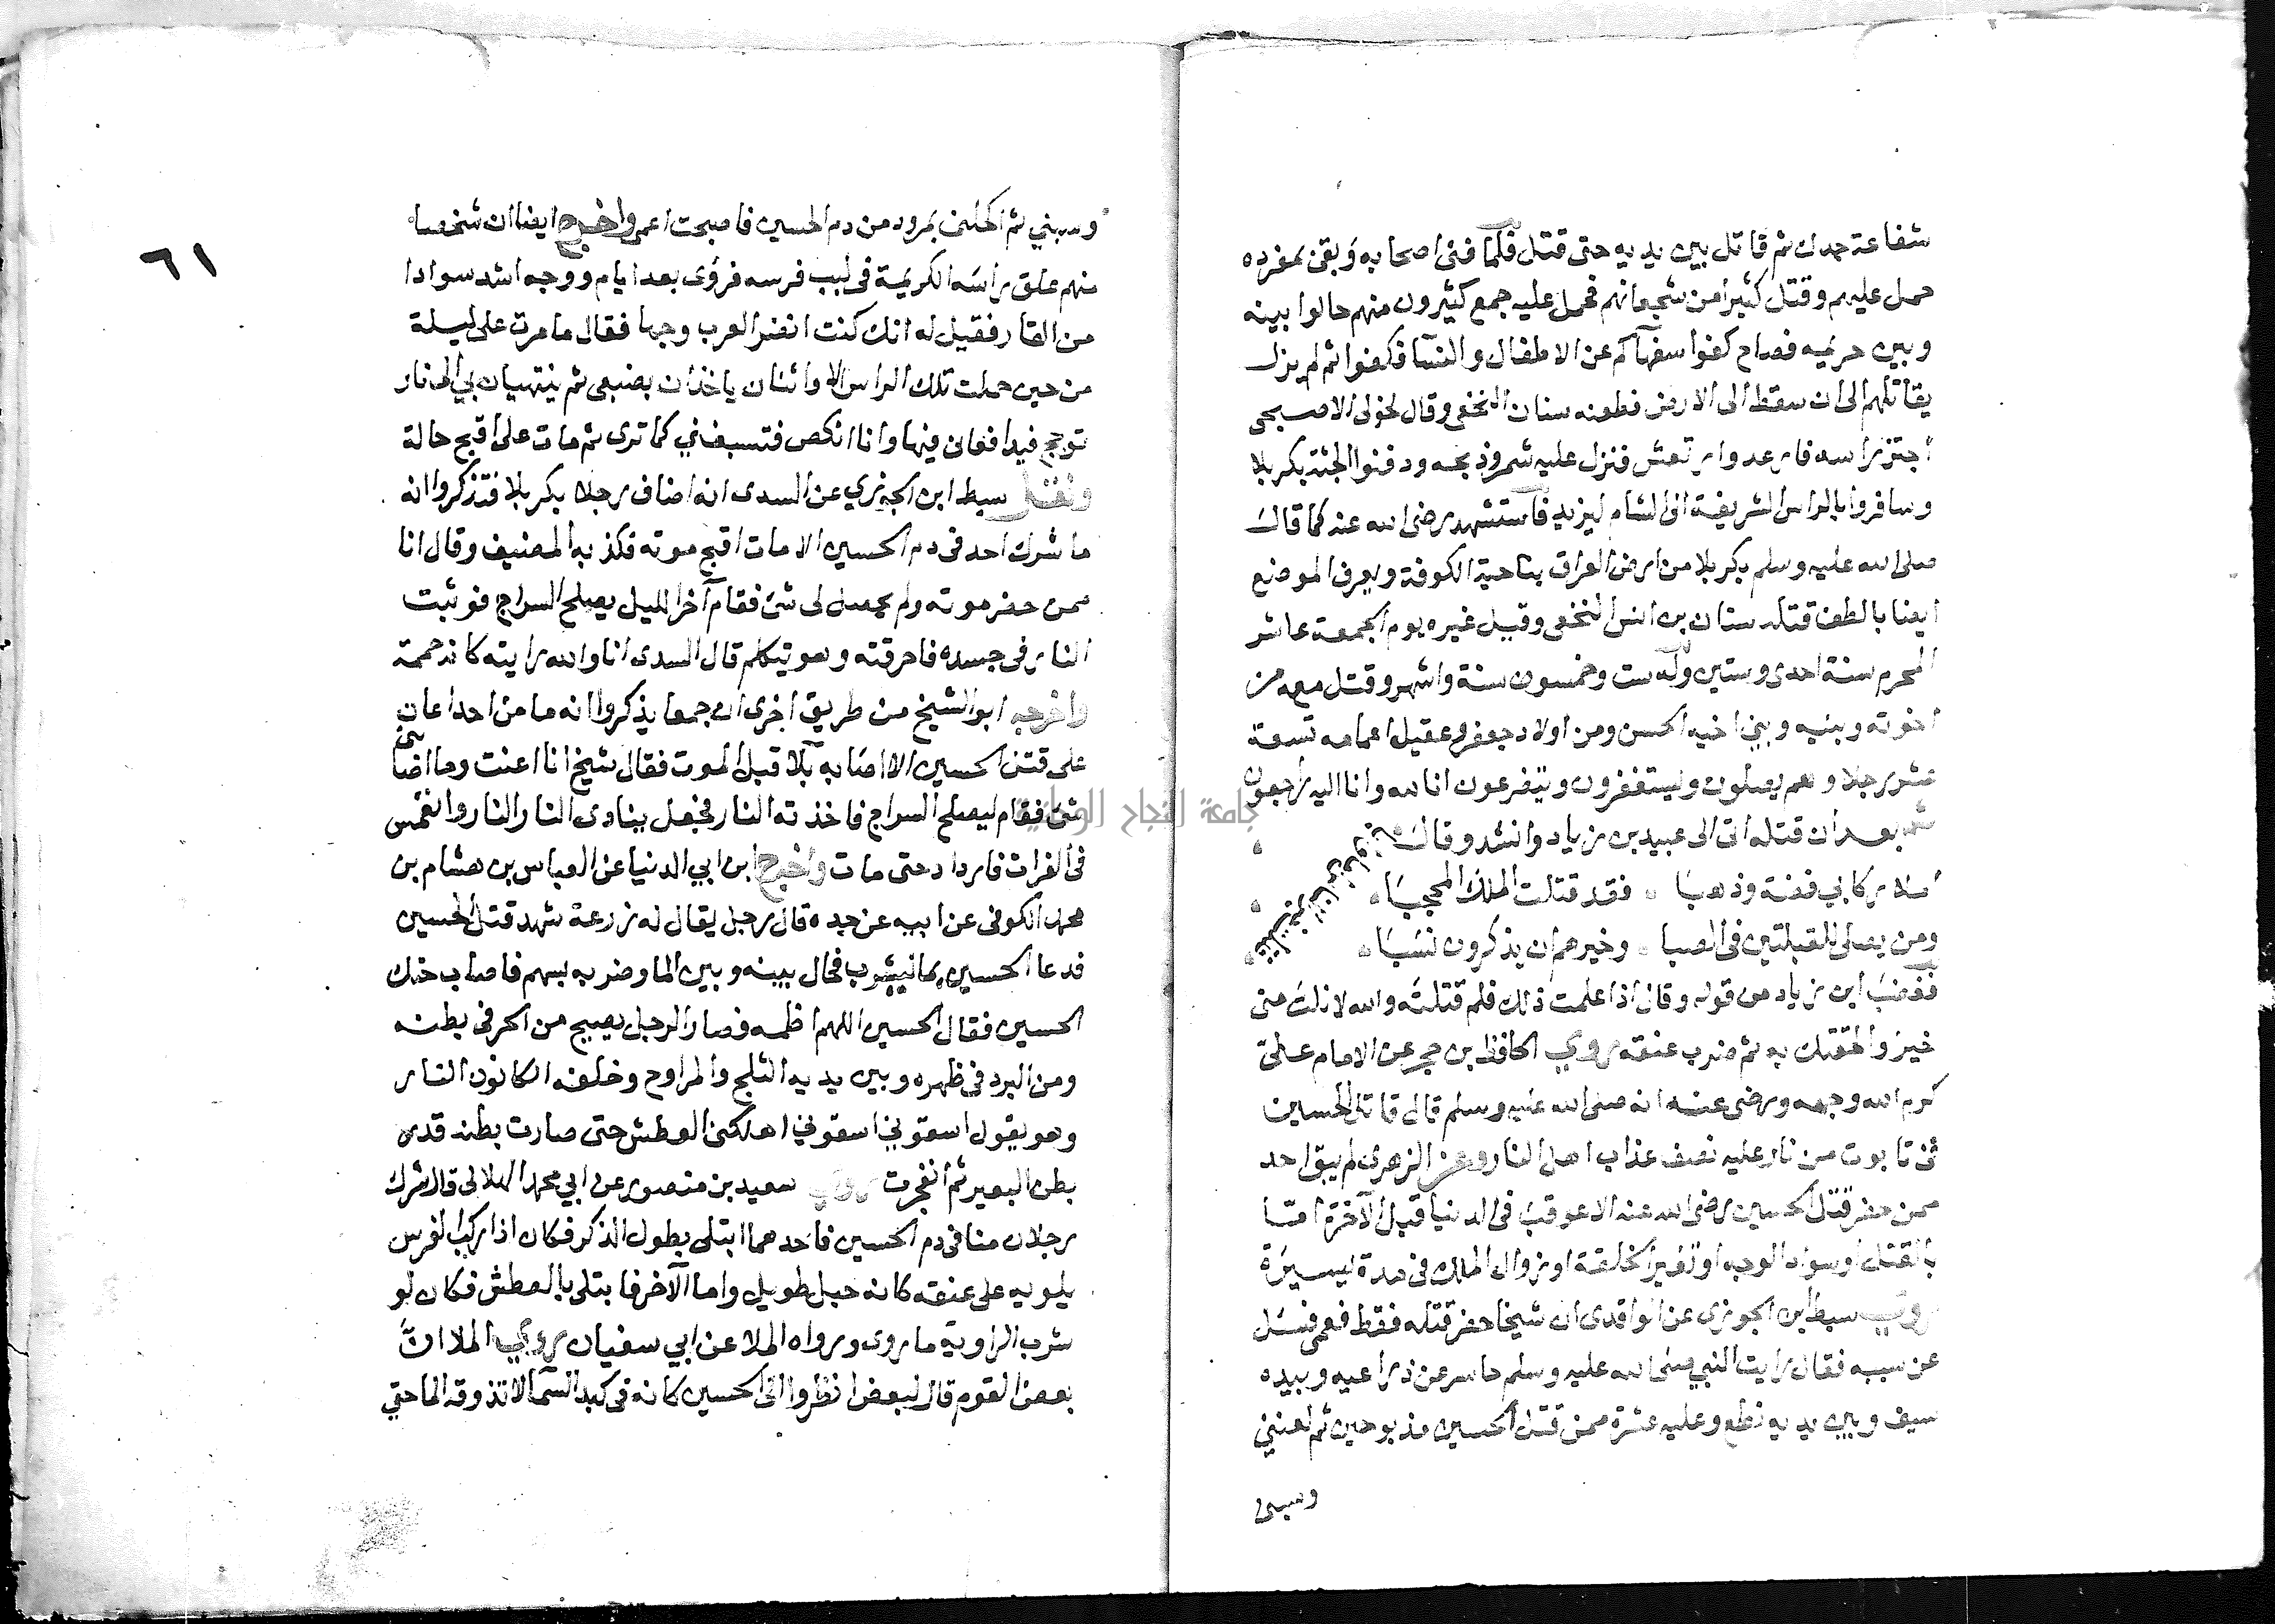 شفاعة جدك ثم قاتل بين يديه حتى قتل فلما فنى اصحابه وبقى بمفرده
حمل عليهم وقتل كثيرا من شجعانهم فحمل عليه جمع كثيرون منهم حالوا بينه
وبين حريمه فصاح كفوا سفهآكم عن الاطفال والنسآ فكفوا ثم لم يزل
يقاتلهم الى ان سقط الى الارض فطعنه سنان النخعى وقال لخولى الاصبحى
اجتز راسه فارعد وارتعش فنزل عليه شمر وذبحه ودفنوا الجثة بكربلا
وسافروا بالراس الشريفة الى الشام ليزيد فاستشهد رضى الله عنه كما قال
صلى الله عليه وسلم بكربلا من ارض العراق بناحية الكوفة ويعرف الموضع
ايضا بالطف قتله سنان بن انس النخعى وقيل غيره يوم الجمعة عاشر
المحرم سنة احدى وستين وله ست وخمسون سنة واشهر وقتل معه من
اخوته وبنيه وبنى اخيه الحسن ومن اولاد جعفر وعقيل اعمامه تسعة
عشر رجلا وهم يصلون ويستغفرون ويتضرعون انا لله وانا اليه راجعون
ثم بعد ان قتله اتى الى عبيد بن زياد وانشد وقال
املا ركابي فضة وذهبا فقد قتلت الملك المحجبا
ومن يصلى للقبلتين فى الصبا وخيرهم ان يذكرون نسبا
فغضب ابن زياد من قوله وقال اذا علمت ذلك فلم قتلته والله لا نلت منى
خيرا ولالحقنك به ثم ضرب عنقه وروي الحافظ بن حجر عن الامام على
كرم الله وجهه ورضى عنه انه صلى الله عليه وسلم قال قاتل الحسين
فى تابوت من نار عليه نصف عذاب اهل النار وعن الزهرى لم يبق احد
ممن حضر قتل الحسين رضى الله عنه الا عوقب فى الدنيا قبل الآخرة امّا
بالقتل او سواد الوجه او تغير الخلقة او زوال الملك فى مدة يسيرة
وروي سبط ابن الجوزى عن الواقدى ان شيخا حضر قتله فقط فعمى فسئل
عن سببه فقال رايت النبي صلى الله عليه وسلم حاسر عن ذراعيه وبيده
سيف وبين يديه نطع وعليه عشرة ممن قتل الحسين مذبوحين ثم لعننى
وسبنى
٦١
وسبني ثم اكحلنى بمرود من دم الحسين فاصبحت اعمى واخرج ايضا ان شخصا
منهم علق راسه الكريمة فى لبب فرسه فرؤى بعد ايام ووجه اشد سوادا
من القار فقيل له انك كنت انضر العرب وجها فقال ما مرت على ليلة
من حين حملت تلك الراس الا واثنان ياخذان بضبعى ثم ينتهيان بي الى نار
توجج فيدافعانى فيها وانا انكص فتسبفنى كما ترى ثم مات على اقبح حالة
ونقل سبط ابن الجوزي عن السدى انه اضاف رجلا بكربلا فتذكروا انه
ما شرك احد فى دم الحسين الا مات اقبح موته فكذبه المضيف وقال انا
ممن حضر موته ولم يحصل لى شئ فقام آخر الليل يصلح السراج فوثبت
النار فى جسده فاحرقته وهو يتكلم قال السدى انا والله رايته كانه حممة
واخرجه ابو الشيخ من طريق اخرى ان جمعا يذكروا انه ما من احد اعان
على قتل الحسين الا اصابه بلآ قبل الموت فقال شيخ انا اعنت وما اصابنى
شئ فقام ليصلح السراج فاخذته النار فجعل ينادى النار النار وانغمس
فى الفرات فازداد حتى مات واخرج ابن ابي الدنيا عن العباس بن هشام بن
محمد الكوفى عن ابيه عن جده قال رجل يقال له زرعة شهد قتل الحسين
فدعا الحسين بما ليشرب فحال بينه وبين الما وضربه بسهم فاصاب حنك
الحسين فقال الحسين اللهم اظمه فصار الرجل يصيح من الحر فى بطنه
ومن البرد فى ظهره وبين يديه الثلج والمراوح وخلفه الكانون النار
وهو يقول اسقوني اسقوني اهلكنى العطش حتى صارت بطنه قدر
بطن البعير ثم انفجرت وروي سعيد بن منصور عن ابي محمد الهلالى قال شرك
رجلان منا فى دم الحسين فاحدهما ابتلى بطول الذكر فكان اذا ركب الفرس
يلويه على عنقه كانه حبل طويل واما الآخر فابتلى بالعطش فكان لو
شرب الراوية ما روى ورواه الملا عن ابي سفيان وروي الملا انّ
بعض القوم قال لبعض انظروا الى الحسين كانه فى كبد السمآ لا تذوقه الما حتى
جامعة النجاح الوطنية